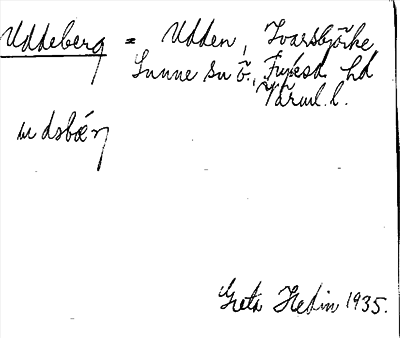 Uddeberg = Udden, Ivarsbjörke,
Sunne sn ö., Fryksd. hd
Värml. l.
udsbær
Greta Hedin 1935.